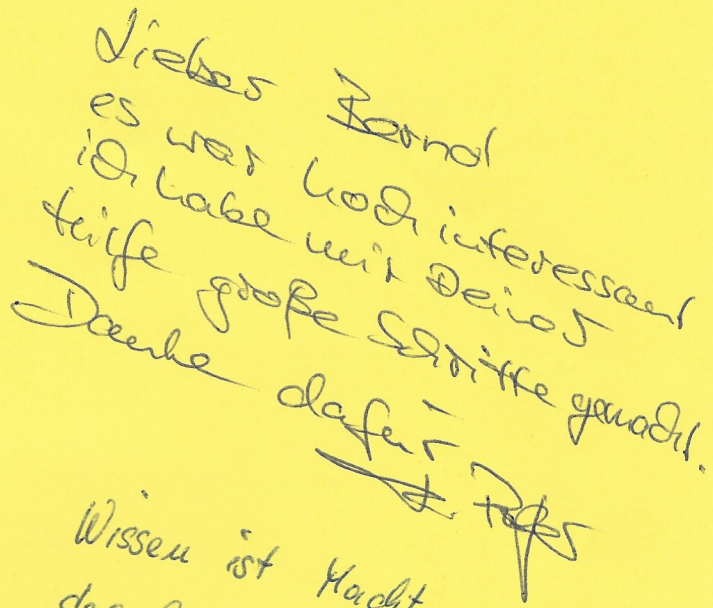 Lieber Bernd
es war hoch interessant
ich habe mit Deiner
Hilfe große Schritte gemacht.
Danke dafür
Wissen ist Macht